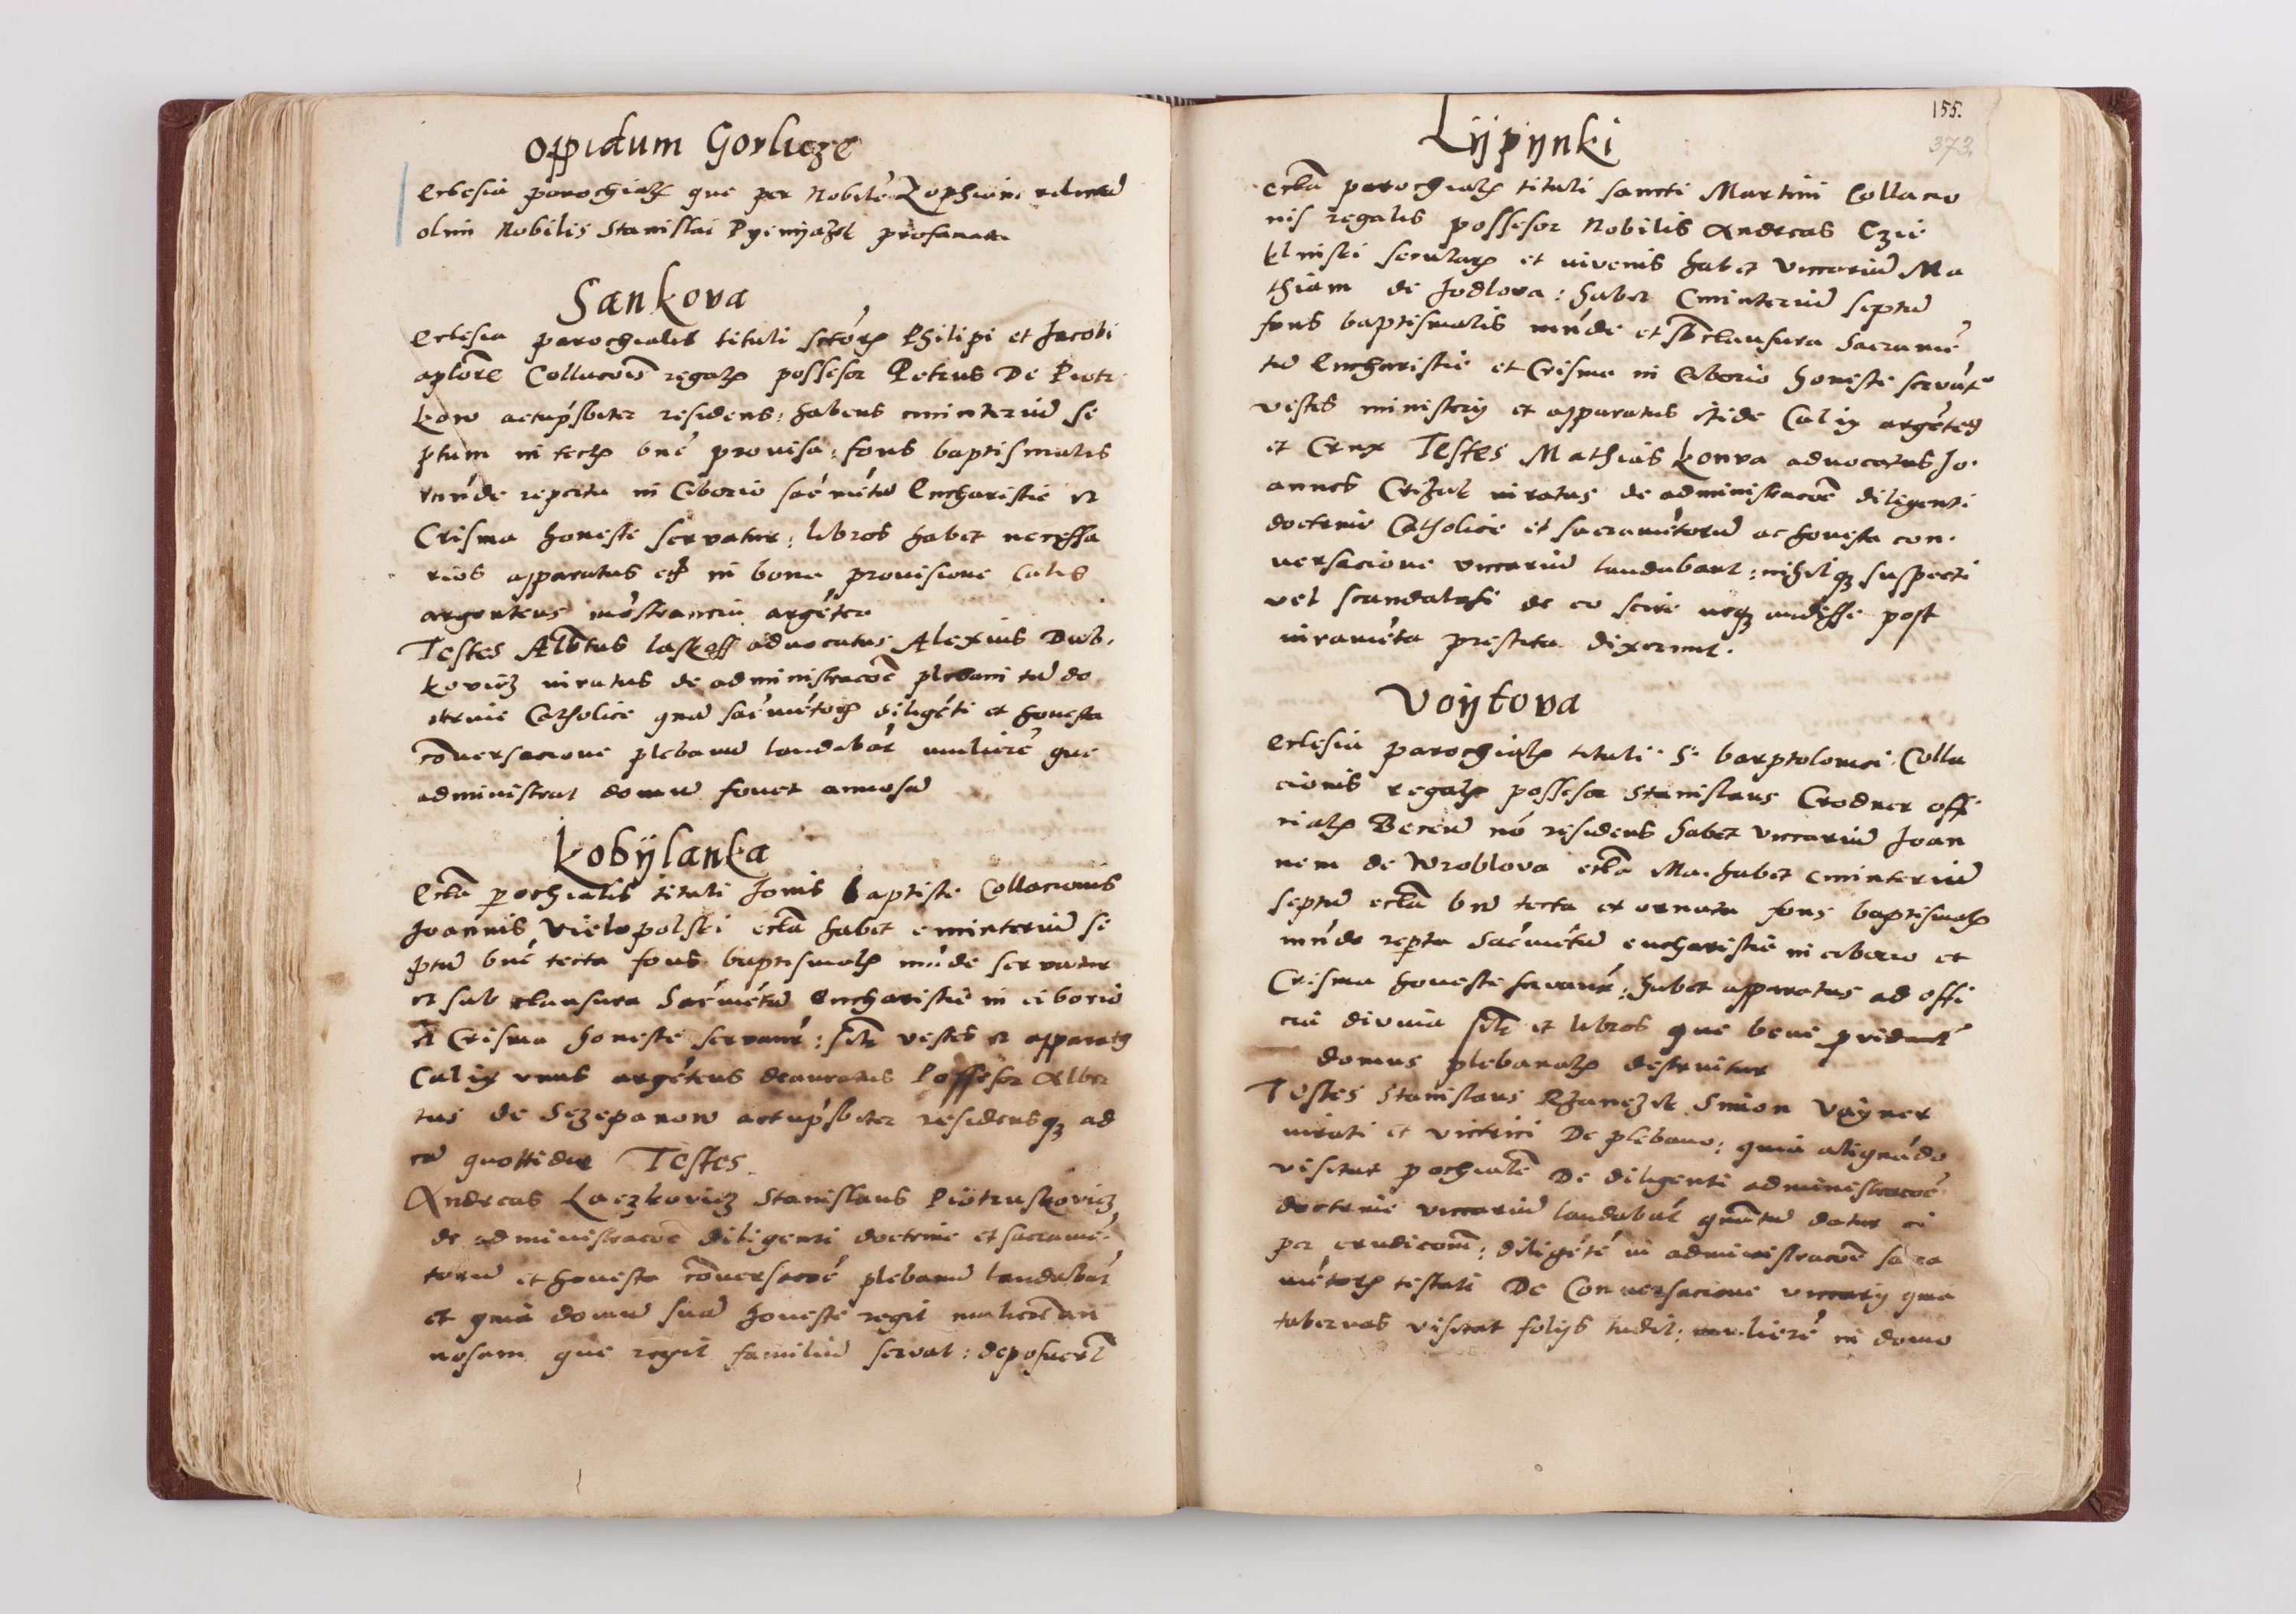 Oppidum Gorlicze
Eclesia parochialis que per Nobile Zophiam relictã
olim Nobilis Stanislai Pyeniazek profanata
Sankova
Eclesia parochialis tituli sctorȝ Philipi et Jacobi
aplorȝ Collacois regalis possessor Petrus De Piotr
kow actu psbiter residens, habens ciminteriũ se
ptum in tectis bñe provisa, fons baptismalis
mũde reperta in Ciborio sacmẽtũ Eucharistie et
Crisma honeste servatur, libros habet necessa
rios apparatus in bona provisione Calix
argenteus mõstrancia argẽtea
Testes Albtus advocatus Alexius Dub.
kovicz iuratus de administracoẽ plebani tũ do
ctrine Catholice quã sacmẽtorȝ diligẽti et honesta
cõversacione plebanũ laudabãt mulierẽ que
administrat domũ fovet annosã
Kobijlanka
Ecta pochialis tituli Jonis baptiste Collacionis
Joannis Vielopolski ecta habet ciminteriũ se
ptũ bñe tecta fons baptismalis mũde servatur
et sub clausura Sacmẽtũ Eucharistie in ciborio
et Crisma honeste servatur: silr vestes et apparatus
Calix unus argẽteus deauratus Possessor Alber
tus de Sczepanow actu psbiter residensqȝ ad
eã quottidie Testes
Andreas Laczkovicz Stanislaus Piotruskovicz
de administracoe diligenti doctrine et sacramẽ
torũ et honesta cõversacoẽ plebanũ laudabãt
et quia domũ suã honeste regit mulierẽ an
nosam que regit familiã servat: deposuert
155.
373.
Lijpijnki
Ecta parochialis tituli sancti Martini Collacio
nis regalis possessor Nobilis Andreas Czie
klinski secularis et iuvenis habet vicariũ Ma
thiam de Jodlova: habet Ciminteriũ septũ
fons baptismalis mũde et sb clausura Sacramẽ
tũ Eucharistie et Crisma in Ciborio honeste servãt
vestes ministerij et apparatus itide Calix argẽteus
et Crux Testes Mathias Konva advocatus Jo.
annes iuratus de administracoẽ diligenti
doctrine Catholice et sacramẽtorũ ac honesta con.
versacione vicariũ laudabant: nihilqȝ suspecti
vel scandalosi de eo scire neqȝ audisse post
iuramẽta prestita dixerunt.
Voijtova
Eclesia parochialis tituli S. barptolomei Colla
cionis regalis possessor Stanislaus Crodner offi
cialis Becen nõ residens habet vicariũ Joan
nem de Wroblova ecta Ma. habet ciminteriũ
septũ ecta bñ tecta et ornata fons baptismalis
mũde repta Sacmẽtũ eucharistie in ciborio et
Crisma honeste servantur: habet apparatus ad offi
cia divina silr et libros que bene pvident
domus plebanalis destruitur
Testes Stanislaus Simon Vayner
iurati et victrici De plebano: quia aliquãdo
visitat pochialẽ De diligenti administracoẽ
doctrine vicariũ laudabãt quãtũ datur ei
per erudicionẽ: diligẽtẽ in administracoẽ sacra
mẽtorȝ testati De Conversacione vicarij quia
tabernas visitat folijs ludit: mulierẽ in domo